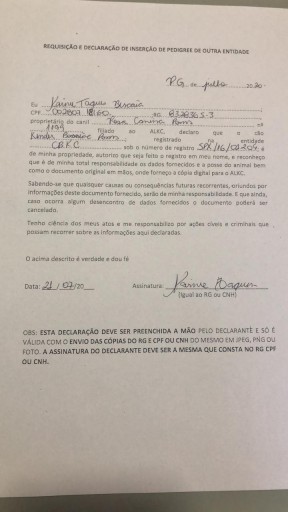 REQUISIÇÃO E DECLARAÇÃO DE INSERÇÃO DE PEDIGREE DE OUTRA ENTIDADE
P.G. de julho 2020
Eu
CPF RG 832836 5-3
proprietário do canil no
filiado ao ALKC, declaro que o cão
registrado na entidade
CBKC sob o número de registro é
de minha propriedade, autorizo que seja feito o registro em meu nome, e reconheço
que é de minha total responsabilidade os dados fornecidos e a posse do animal bem
como o documento original em mãos, onde forneço a cópia digital para o ALKC.
Sabendo-se que quaisquer causas ou consequências futuras recorrentes, oriundos por
informações deste documento fornecido, serão de minha responsabilidade. E que ainda,
caso ocorra algum desencontro de dados fornecidos o documento poderá ser
cancelado.
Tenho ciência dos meus atos e me responsabilizo por ações cíveis e criminais que
possam recorrer sobre as informações aqui declaradas.
O acima descrito é verdade e dou fé
Data: 21/07/20 Assinatura:
(Igual ao RG ou CNH)
OBS: ESTA DECLARAÇÃO DEVE SER PREENCHIDA A MÃO PELO DECLARANTE E SÓ É
VÁLIDA COM O ENVIO DAS CÓPIAS DO RG E CPF OU CNH DO MESMO EM JPEG, PNG OU
FOTO. A ASSINATURA DO DECLARANTE DEVE SER A MESMA QUE CONSTA NO RG CPF
OU CNH.